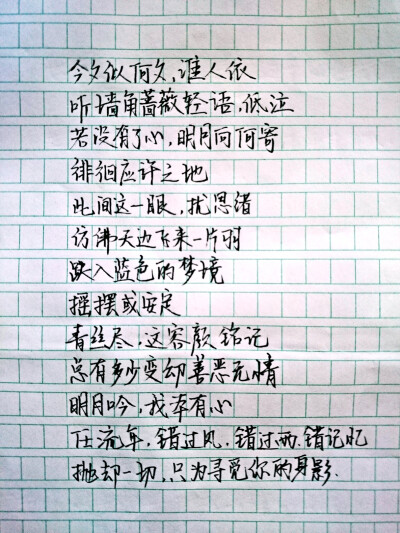 今夕似何夕,谁人依
听墙角蔷薇轻语,低泣
若没有了心,明月向何寄
徘徊应许之地
此间这一眼,扰思绪
仿佛天边飞来一片羽
跌入蓝色的梦境
摇摆或安定
青丝尽,这容颜铭记
总有多少变幻善恶无情
明月吟,我本有心
任流年,错过风,错过雨,错记忆
抛却一切,只为寻觅你的身影.